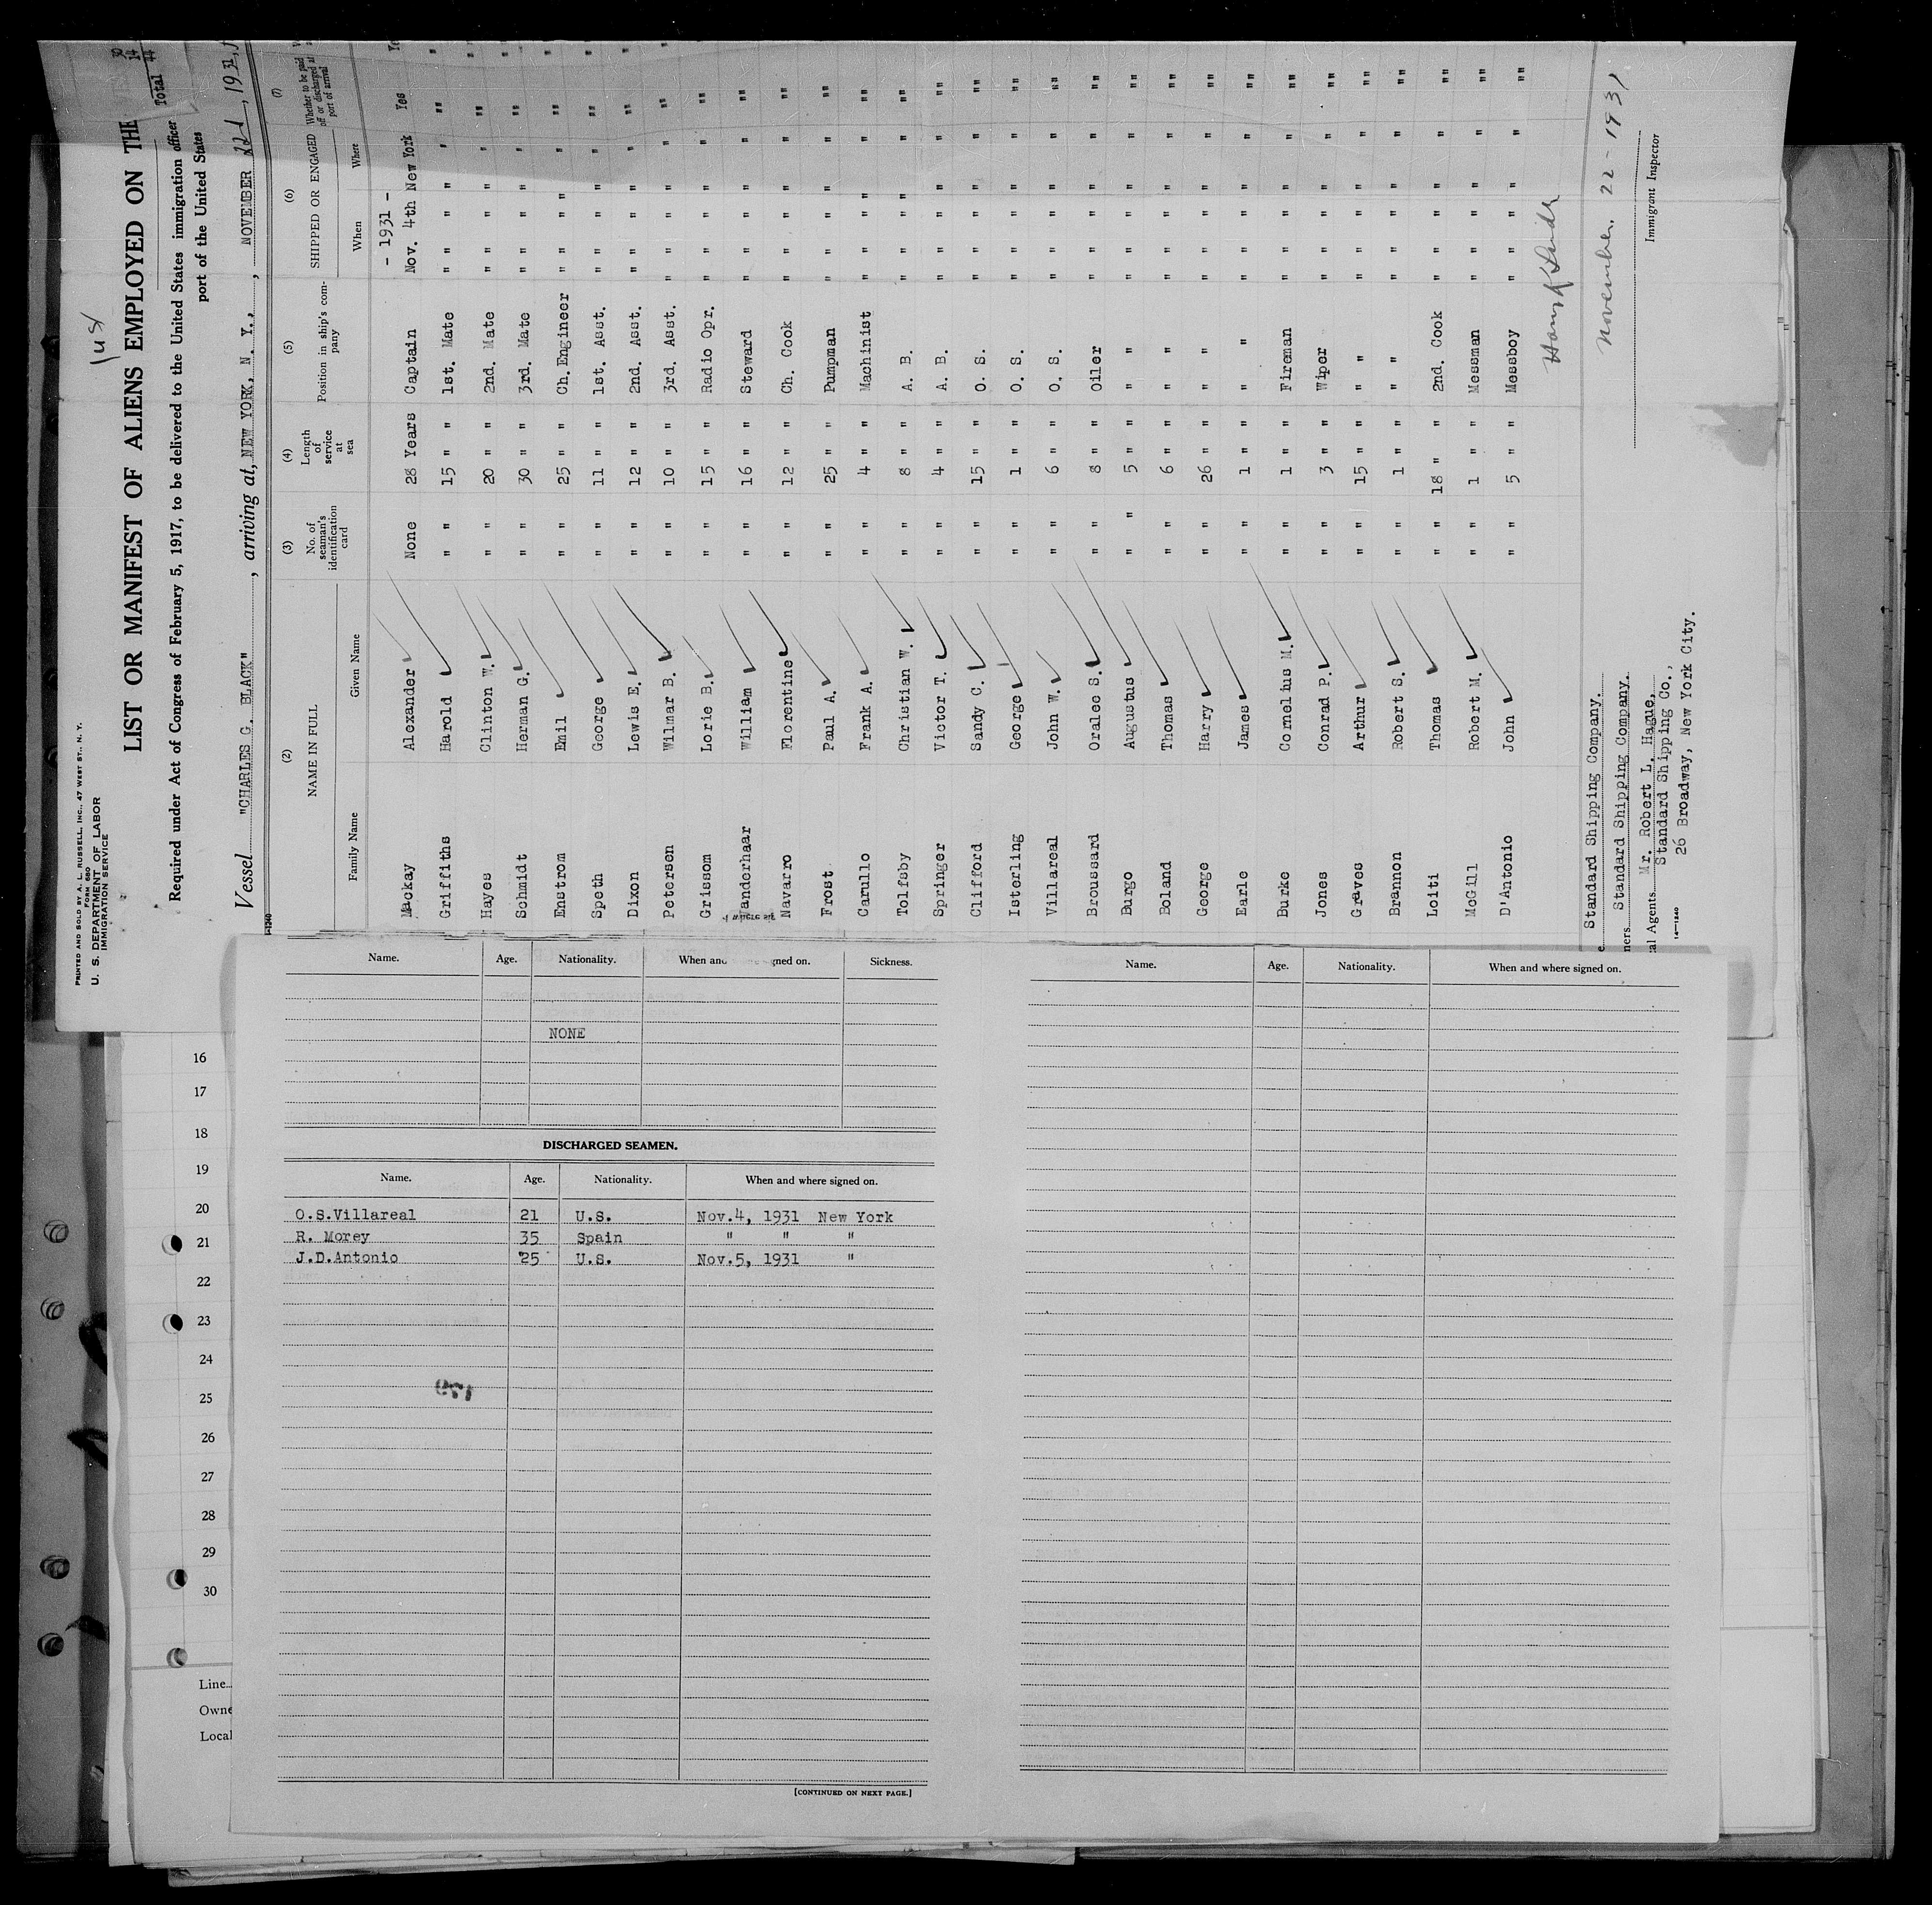 PRINTED AND SOLD BY A. L. RUSSELL, INC., 47 WEST ST., N. Y.
FORM 680
U. S. DEPARTMENT OF LABOR
IMMIGRATION SERVICE
1 us
LIST OR MANIFEST OF ALIENS EMPLOYED ON THE
Total 44
Required under Act of Congress of February 5, 1917, to be delivered to the United States immigration officer
port of the United States
Vessel "CHARLES G. BLACK", arriving at, NEW YORK, N. Y., NOVEMBER 22d, 1931,
(2) (3) (4) (5) (6) (7)
NAME IN FULL No. of seaman's identification card Length of service at sea Position in ship's company SHIPPED OR ENGAGED Whether to be paid off or discharged at port of arrival
Family Name Given Name When Where
- 1931 -
Mackay Alexander None 28 Years Captain Nov. 4th New York Yes
Griffiths Harold " " 15 " " 1st. Mate " " " " "
Hayes Clinton W. " " 20 " " 2nd. Mate " " " " " ""
Schmidt Herman G. " " 30 " " 3rd. Mate " " " " " ""
Enstrom Emil " " 25 " " Ch. Engineer " " " " " ""
Speth George " " 11 " " 1st. Asst. " " " " " ""
Dixon Lewis E. " " 12 " " 2nd. Asst. " " " " " ""
Petersen Wilmar B. " " 10 " " 3rd. Asst. " " " " ""
Grissom Lorie B. " " 15 " " Radio Opr. " " " " ""
Vanderhaar William " " 16 " " Steward " " " " ""
Navarro Florentine " " 12 " " Ch. Cook " " " " ""
Frost Paul A. " " 25 " " Pumpman " " " " ""
Carullo Frank A. " " 4 " " Machinist " " " " ""
Tolfsby Christian W. " " 8 " " A. B. " " " " ""
Springer Victor T. " " 4 " " A. B. " " " " ""
Clifford Sandy C. " " 15 " " O. S. " " " " ""
Isterling George " " 1 " " O. S. " " " " ""
Villareal John W. " " 6 " " O. S. " " " " ""
Broussard Oralee S. " " 8 " " Oiler " " " " ""
Burgo Augustus " " 5 " " " " " " " " ""
Boland Thomas " " 6 " " " " " " " ""
George Harry " " 26 " " " " " " " ""
Earle James " " 1 " " " " " " " ""
Burke Cornelius M. " " 1 " " Fireman " " " " ""
Jones Conrad P. " " 3 " " Wiper " " " " ""
Graves Arthur " " 15 " " " " " " " " ""
Brannon Robert S. " " 1 " " " " " " " " ""
Loiti Thomas " " 18 " " 2nd. Cook " " " " ""
McGill Robert M. " " 1 " " Messman " " " " ""
D'Antonio John " " 5 " " Messboy " " " " ""
November. 22-1931
Immigrant Inspector
Standard Shipping Company.
ners Standard Shipping Company.
al Agents Mr. Robert L. Hague,
Standard Shipping Co.,
26 Broadway, New York City.
14—1240
Name. Age. Nationality. When and signed on. Sickness.
NONE
DISCHARGED SEAMEN.
Name. Age. Nationality. When and where signed on.
O.S.Villareal 21 U.S. Nov.4, 1931 New York
R. Morey 35 Spain " " "
J.D.Antonio 25 U.S. Nov.5, 1931 "
[CONTINUED ON NEXT PAGE.]
Name. Age. Nationality. When and where signed on.
16
17
18
19
20
21
22
23
24
25
26
27
28
29
30
Line
Owne
Local